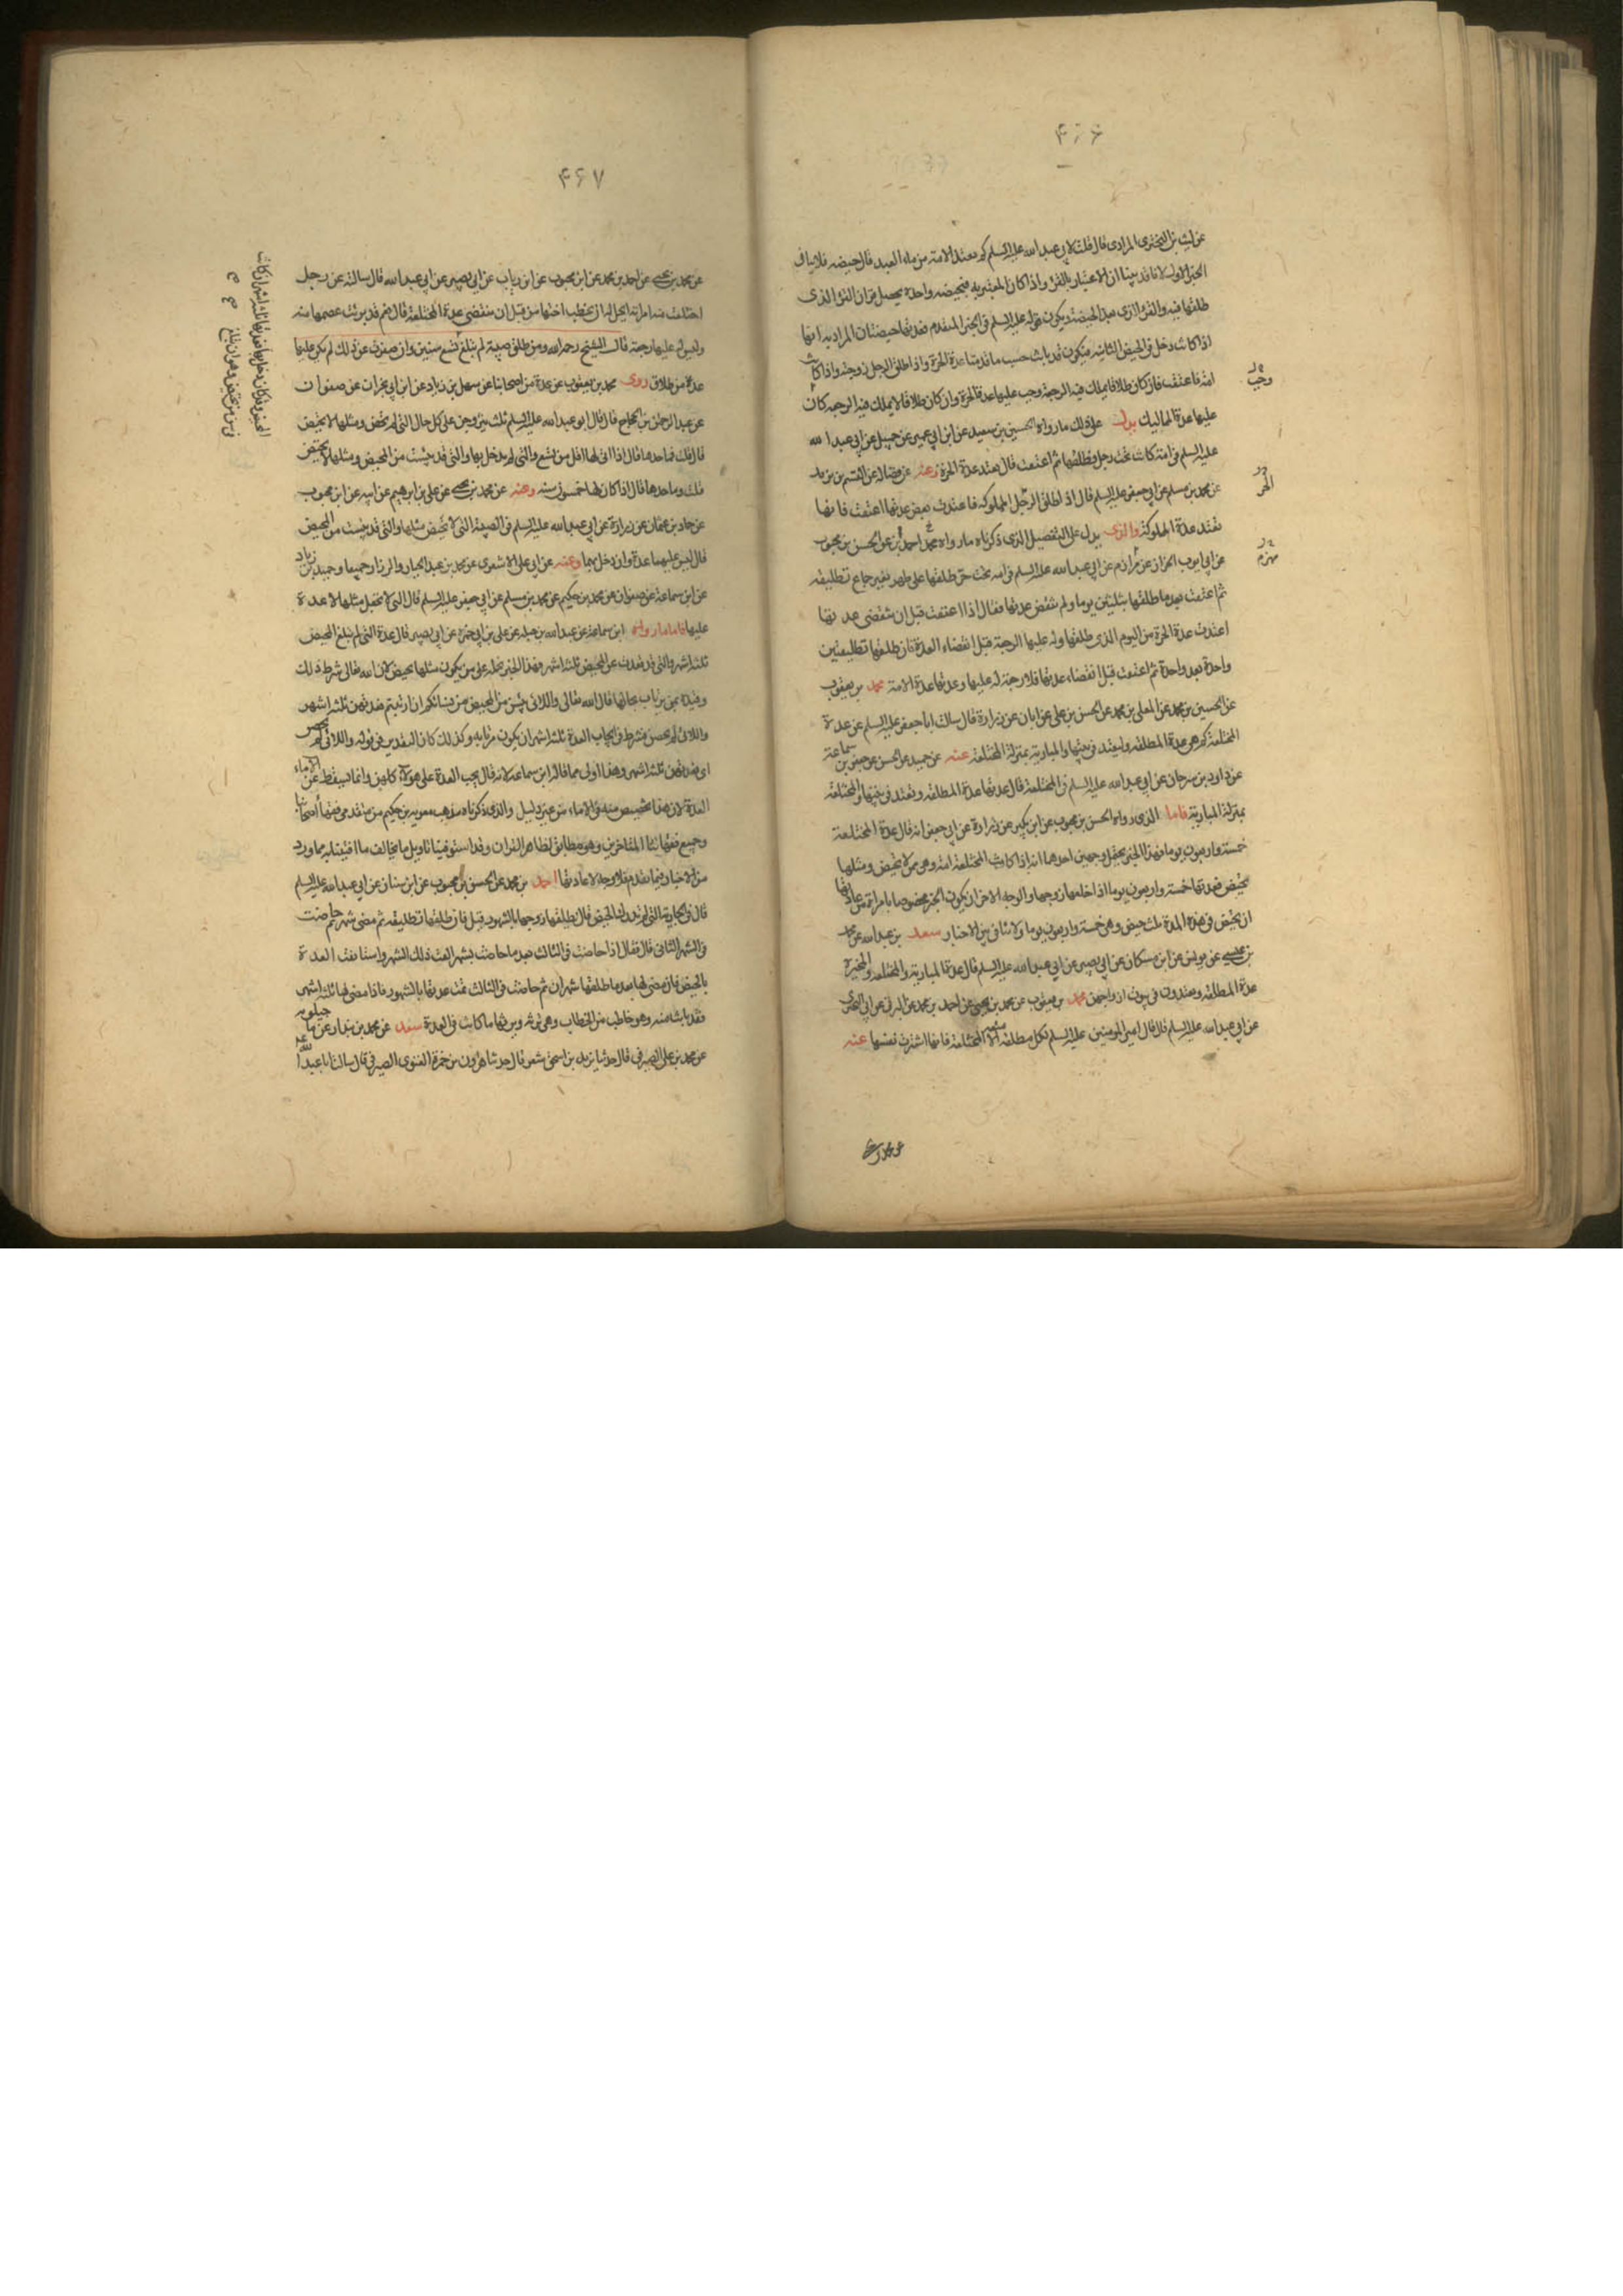 ۴۶۶
عن ليث بن البختري المرادي قال قلت لابي عبد الله عليه السلم كم تعتد الامة من ماء العبد قال حيضه فلا ينافي
الخبر الاول لانا قد بينا ان الاعتبار بالقرؤ واذا كان المعتبر به فبحيضه واحدة يحصل قران القرؤ الذي
طلقها فيه والقرؤ الذي بعد الحيضة ويكون قوله عليه السلم في الخبر المتقدم فعدتها حيضتان المراد به انها
اذا كانت دخل في الحيض الثانية فيكون قد بانت حسب ما قدمنا عدة الحرة واذا طلق الرجل زوجته واذا كانت
امة فاعتقت فان كان طلاقا يملك فيه الرجعة وجب عليها عدة الحرة وان كان طلاقا لا يملك فيه الرجعه كان
عليها عدة المماليك يدل على ذلك ما رواه الحسين بن سعيد عن ابن ابي عمير عن جميل عن ابي عبد الله
عليه السلم في امة كانت تحت رجل فطلقها ثم اعتقت قال تعتد عدة الحرة وعنه عن فضالة عن القسم بن بريد
عن محمد بن مسلم عن ابي جعفر عليه السلم قال اذا طلق الرجل المملوكه فاعتدت بعض عدتها اعتقت فانها
تعتد عدة المملوكة والذي يدل على التفصيل الذي ذكرناه ما رواه محمد احمد بن عن الحسن بن محبوب
عن ابي ايوب الخزاز عن مرازم عن ابي عبد الله عليه السلم في امة تحت حر طلقها على طهر بغير جماع تطليقه
ثم اعتقت بعد ما طلقها بثلثين يوما ولم تنقض عدتها فقال اذا اعتقت قبل ان تنقضي عدتها
اعتدت عدة الحرة من اليوم الذي طلقها وله عليها الرجعة قبل انقضاء العدة فان طلقها تطليقتين
واحدة بعد واحدة ثم اعتقت قبل انقضاء عدتها فلا رجعة له عليها وعدتها عدة الامة محمد بن يعقوب
عن الحسين بن محمد عن المعلى بن محمد عن الحسن بن علي عن ابان عن زرارة قال سالت ابا جعفر عليه السلم عن عدة
المختلعة كم هي عدة المطلقه ولتعتد في بيتها والمبارية بمنزلة المختلعة عنه عن حميد عن الحسن عن جعفر بن سماعة
عن داود بن سرحان عن ابي عبد الله عليه السلم في المختلعة قال عدتها عدة المطلقه وتعتد في بيتها والمختلعة
بمنزلة المبارية فاما الذي رواه الحسن بن محبوب عن ابن بكير عن زرارة عن ابي جعفر انه قال عدة المختلعة
خمسة واربعون يوما فهذا الخبر يحتمل وجهين احدهما انه اذا كانت المختلعة امة وهي ممن لا تحيض ومثلها
تحيض فعدتها خمسة واربعون يوما اذا خلعها زوجها والوجه الاخر ان يكون الخبر مخصوصا بامراة من عادتها
ان تحيض في هذه المدة ثلث حيض وهي خمسة واربعون يوما ولا تنافي بين الاخبار سعد بن عبد الله عن محمد
بن عيسى عن يونس عن ابن مسكان عن ابي بصير عن ابي عبد الله عليه السلم قال عدة المبارية والمختلعه والمخيرة
عدة المطلقه ويعتدون في بيوت ازواجهن محمد بن يعقوب عن محمد بن يحيى عن احمد بن محمد عن البرقي عن ابي البختري
عن ابي عبد الله عليه السلم قال قال امير المؤمنين عليه السلم لكل مطلقه متعه الا المختلعة فانها اشترت نفسها عنه
وجب
الحر
مهزم
عن محمد بن يحيى
۴۶۷
عن محمد بن يحيى عن احمد بن محمد عن ابن محبوب عن ابن رياب عن ابي بصير عن ابي عبد الله قال سالته عن رجل
اختلعت منه امراته ايحل له ان يخطب اختها من قبل ان تنقضي عدة المختلعة قال نعم قد برئت عصمتها منه
وليس له عليها رجعة قال الشيخ رحمه الله ومن طلق صبية لم تبلغ تسع سنين وان صغرت عن ذلك لم يكن عليها
عدة من طلاق روى محمد بن يعقوب عن عدة من اصحابنا عن سهل بن زياد عن ابن ابي نجران عن صفوان
عن عبد الرحمن بن الحجاج قال قال ابو عبد الله عليه السلم ثلث يتزوجن على كل حال التي لم تحض ومثلها لا تحيض
قال قلت فما حدها قال اذا اتى لها اقل من تسع والتي لم يدخل بها والتي قد يئست من المحيض ومثلها لا تحيض
قلت وما حدها قال اذا كان لها خمسون سنه وعنه عن محمد بن يحيى عن علي بن ابرهيم عن ابيه عن ابن محبوب
عن حماد بن عثمان عن زرارة عن ابي عبد الله عليه السلم في الصبية التي لا تحيض مثلها والتي قد يئست من المحيض
قال ليس عليهما عدة وان دخل بهما وعنه عن ابي علي الاشعري عن محمد بن عبد الجبار والرزاز جميعا وحميد بن زياد
عن ابن سماعة عن صفوان عن محمد بن حكيم عن محمد بن مسلم عن ابي جعفر عليه السلم قال التي لا تحبل مثلها لا عدة
عليها فاما ما رواه ابن سماعة عن عبد الله بن جبلة عن علي بن ابي حمزة عن ابي بصير قال عدة التي لم تبلغ المحيض
ثلثة اشهر والتي قد قعدت عن المحيض ثلثة اشهر فهذا الخبر نحمله على من يكون مثلها تحيض لان الله تعالى شرط ذلك
وقيده بمن يرتاب بحالها قال الله تعالى واللائي يئسن من المحيض من نسائكم ان ارتبتم فعدتهن ثلثة اشهر
واللائي لم يحضن فشرط في ايجاب العدة ثلثة اشهر ان يكون مرتابه وكذلك كان التقدير في قوله واللائي لم يحضن
اي فعدتهن ثلثة اشهر وهذا اولى مما قاله ابن سماعة لانه قال يجب العدة على هولاء كلهن وانما يسقط عن الاماء
العدة لان هذا تخصيص منه في الاماء من غير دليل والذي ذكرناه مذهب معوية بن حكيم من متقدمي فقهاء اصحابنا
وجميع فقهائنا المتاخرين وهو مطابق لظاهر القران وقد استوفينا تاويل ما يخالف ما افتينا به مما ورد
من الاخبار فيما تقدم فلا وجه لاعادتها احمد بن محمد عن الحسن بن محبوب عن ابن سنان عن ابي عبد الله عليه السلم
قال في الجارية التي لم تدرك الحيض قال يطلقها زوجها بالشهور قيل فان طلقها تطليقه ثم مضى شهر ثم حاضت
في الشهر الثاني قال فقال اذا حاضت في الثالث بعد ما حاضت بشهر القت ذلك الشهر واستانفت العدة
بالحيض فان مضى لها بعد ما طلقها شهران ثم حاضت في الثالث تمت عدتها بالشهور فاذا مضى لها ثلثة اشهر
فقد بانت منه وهو خاطب من الخطاب وهي ترثه ويرثها ما كانت في العدة سعد عن محمد بن بندار عن ماجيلويه
عن محمد بن علي الصيرفي قال حدثنا يزيد بن اسحق شعر قال حدثنا هارون بن حمزة الغنوي الصيرفي قال سالت ابا عبد الله